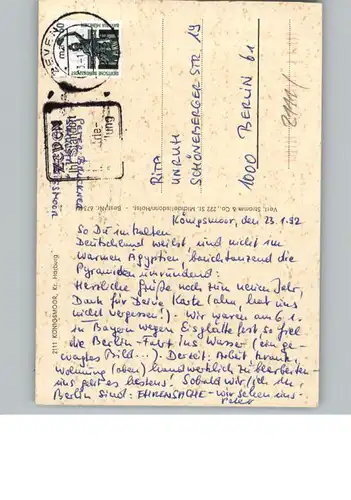 Königsmoor, den 23.1.92
So Du im kalten
Deutschland weilst, und nicht im
warmen Ägypten, bauchtanzend die
Pyramiden umrundend:
Herzliche Grüße noch zum neuen Jahr,
Dank für Deine Karte (also hat uns
nicht vergessen!). Wir waren am 6.1.
in Bayern wegen Eisglätte fest so fiel
die Berlin-Fahrt ins Wasser (ein ge-
wagtes Bild...). Derzeit: Arbeit,
Wohnung (oben) handwerklich zu bearbeiten
uns geht es bestens! Sobald wir/ich in
Berlin sind: EHRENSACHE - wir sehen uns -
Rita
UNRUH
SCHÖNEBERGER STR. 19
1000 BERLIN 61
2111 KÖNIGSMOOR, Kr. Harburg
Verl. Stramm & Co., 222 St. Michaelisdonn/Holst.
DEUTSCHE BUNDESPOST